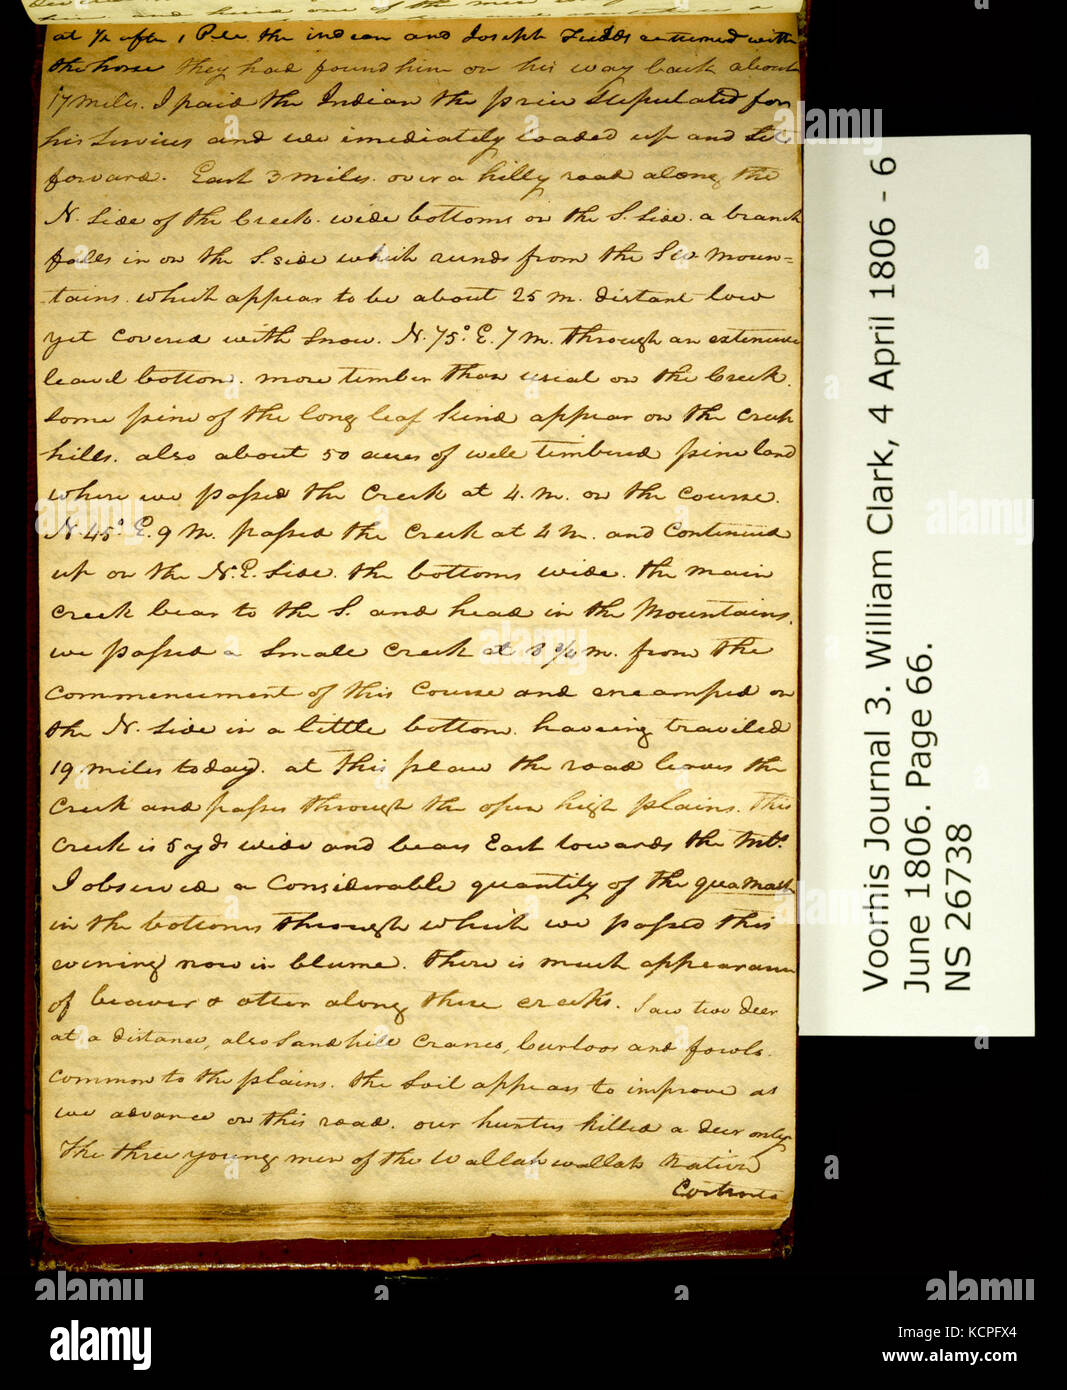 at ½ after 1 P. M. the indian and Joseph Fields returned with
the horse they had found him on his way back about
17 miles. I paid the Indian the price Stipulated for
his Services and we imediately loaded up and Set
forward. East 3 miles. over a hilly road along the
N. Side of the Creek. wide bottoms on the S. Side. a branch
falls in on the S. side which runs from the S W. Moun=
tains. which appear to be about 25 m. distant low
yet Covered with Snow. N. 75° E. 7 m. through an extensive
leavel bottom. more timber than usial on the Creek.
Some pine of the long leaf kind appear on the Creek
hills. also about 50 acres of well timbered pine land
where we passed the Creek at 4. m. on the course.
N. 45° E. 9 M. passed the Creek at 4 M. and Continued
up on the N. E. Side. the bottoms wide. the main
Creek bear to the S. and head in the Mountains.
we passed a Small Creek at 8 ½ m. from the
Commencement of this Course and encamped on
the N. Side in a little bottom. having traveled
19 miles today. at this place the road leaves the
Creek and passes through the open high plains. This
Creek is 5 yds wide and bears East towards the Mts.
I observed a Considerable quantity of the quamash
in the bottoms through which we passed this
evening now in blume. there is much appearance
of beaver & otter along these creeks. Saw two deer
at a distance, also Sand hill Cranes, Curloos and fowls
common to the plains. the Soil appears to improve as
we advance on this road. our hunters killed a deer only
The three young men of the Wallah wallah nation
Voorhis Journal 3. William Clark, 4 April 1806 - 6
June 1806. Page 66.
NS 26738
alamy
a
alamy
Image ID: KCPFX4
www.alamy.com